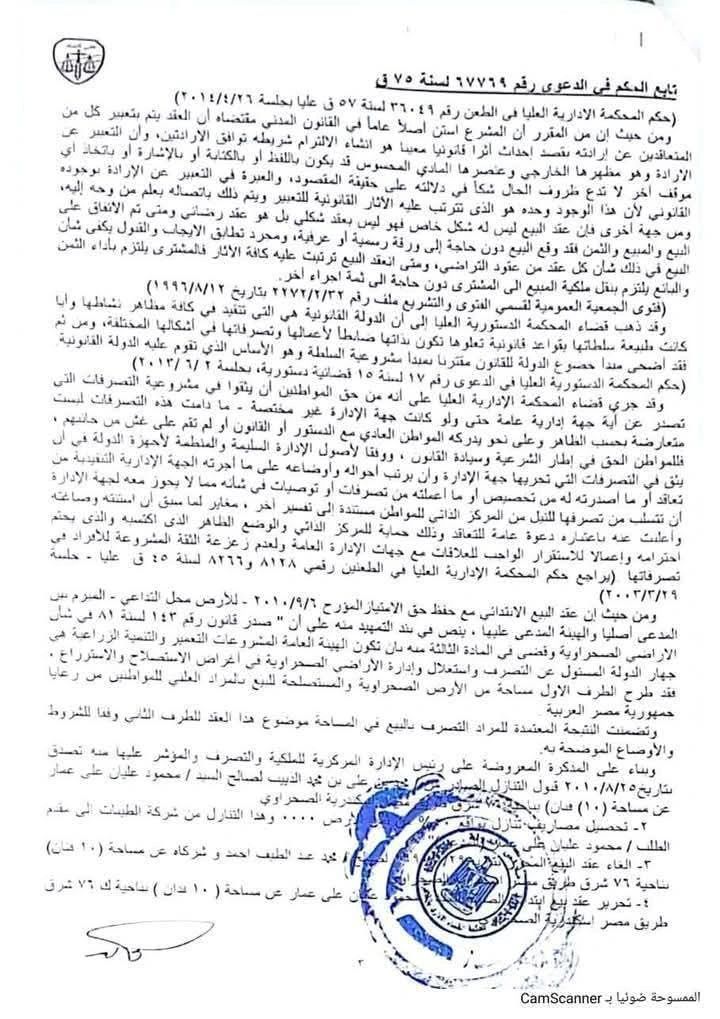 تابع الحكم في الدعوى رقم ٦٧٧٦٩ لسنة ٧٥ ق
(حكم المحكمة الادارية العليا فى الطعن رقم ٣٦٠٤٩ لسنة ٥٧ ق عليا بجلسة ٢٠١٤/٤/٢٦)
ومن حيث إن من المقرر أن المشرع استن أصلاً عاماً في القانون المدني مقتضاه أن العقد يتم بتعبير كل من
المتعاقدين عن إرادته بقصد إحداث أثرا قانونيا معينا هو انشاء الالتزام شريطه توافق الارادتين، وأن التعبير عن
الإرادة وهو مظهرها الخارجي وعنصرها المادي المحسوس قد يكون باللفظ أو بالكتابة أو بالإشارة أو باتخاذ اي
موقف أخر لا تدع ظروف الحال شكاً في دلالته على حقيقة المقصود، والعبرة في التعبير عن الإرادة بوجوده
القانوني لأن هذا الوجود وحده هو الذى تترتب عليه الآثار القانونية للتعبير ويتم ذلك باتصاله بعلم من وجه إليه،
ومن جهة أخرى فإن عقد البيع ليس له شكل خاص فهو ليس بعقد شكلي بل هو عقد رضائي ومتى تم الاتفاق على
البيع والمبيع والثمن فقد وقع البيع دون حاجة إلى ورقة رسمية أو عرفية، ومجرد تطابق الايجاب والقبول يكفى شأن
البيع في ذلك شأن كل عقد من عقود التراضي، ومتى انعقد البيع ترتبت عليه كافة الآثار فالمشترى يلتزم بأداء الثمن
والبائع يلتزم بنقل ملكية المبيع الى المشترى دون حاجة الى ثمة اجراء أخر.
(فتوى الجمعية العمومية لقسمي الفتوى والتشريع ملف رقم ٢٢٧٢/٢/٣٢ بتاريخ ١٩٩٦/٨/١٢)
وقد ذهب قضاء المحكمة الدستورية العليا إلى أن الدولة القانونية هي التي تتقيد في كافة مظاهر نشاطها وأيا
كانت طبيعة سلطاتها بقواعد قانونية تعلوها تكون بذاتها ضابطاً لأعمالها وتصرفاتها في أشكالها المختلفة، ومن ثم
فقد أضحى مبدأ خضوع الدولة للقانون مقترنا بمبدأ مشروعية السلطة وهو الأساس الذي تقوم عليه الدولة القانونية.
(حكم المحكمة الدستورية العليا في الدعوى رقم ١٧ لسنة ١٥ قضائية دستورية، بجلسة ٢ /٦ /٢٠١٣)
وقد جري قضاء المحكمة الإدارية العليا على أنه من حق المواطنين أن يثقوا في مشروعية التصرفات التى
تصدر عن أية جهة إدارية عامة حتى ولو كانت جهة الإدارة غير مختصة - ما دامت هذه التصرفات ليست
متعارضة بحسب الظاهر وعلى نحو يدركه المواطن العادي مع الدستور أو القانون أو لم تقم على غش من جانبهم ،
فللمواطن الحق في إطار الشرعية وسيادة القانون ، ووفقا لأصول الإدارة السليمة والمنظمة لأجهزة الدولة في أن
يثق في التصرفات التي تجريها جهة الإدارة وأن يرتب أحواله وأوضاعه على ما أجرته الجهة الإدارية التنفيدية من
تعاقد أو ما أصدرته له من تخصيص أو ما أعملته من تصرفات أو توصيات في شأنه مما لا يجوز معه لجهة الإدارة
أن تتسلب من تصرفها للنيل من المركز الذاتي للمواطن مستندة إلى تفسير أخر ، مغاير لما سبق أن استنته وصاغته
وأعلنت عنه باعتباره دعوة عامة للتعاقد وذلك حماية للمركز الذاتي والوضع الظاهر الذى اكتسبه والذى يحتم
احترامه وإعمالا للاستقرار الواجب للعلاقات مع جهات الإدارة العامة ولعدم زعزعة الثقة المشروعة للأفراد في
تصرفاتها (يراجع حكم المحكمة الإدارية العليا في الطعنين رقمي ٨١٢٨ و٨٢٦٦ لسنة ٤٥ ق عليا - جلسة
٢٠٠٣/٣/٢٩)
ومن حيث إن عقد البيع الابتدائي مع حفظ حق الامتياز المؤرخ ٢٠١٠/٩/٦ - للأرض محل التداعي - المبرم بين
المدعى أصليا والهيئة المدعى عليها ، ينص في بند التمهيد منه علي أن " صدر قانون رقم ١٤٣ لسنة ٨١ في شأن
الاراضي الصحراوية وقضي في المادة الثالثة منه بان تكون الهيئة العامة لمشروعات التعمير والتنمية الزراعية هي
جهاز الدولة المسئول عن التصرف واستغلال وإدارة الأراضي الصحراوية في أغراض الاستصلاح والاستزراع ،
فقد طرح الطرف الاول مساحة من الأرض الصحراوية والمستصلحة للبيع بالمزاد العلني للمواطنين من رعايا
جمهورية مصر العربية .
وتضمنت النتيجة المعتمدة للمزاد التصرف بالبيع في المساحة موضوع هذا العقد للطرف الثاني وفقا للشروط
والأوضاع الموضحة به.
وبناء على المذكرة المعروضة على رئيس الإدارة المركزية للملكية والتصرف والمؤشر عليها منه تصدق
بتاريخ ٢٠١٠/٨/٢٥ قبول التنازل الصادر من على بن محمد الذبيب لصالح السيد / محمود عليان على عمار
عن مساحة (١٠ فدان) بناحية ٧٦ شرق طريق مصر إسكندرية الصحراوي
٢- تحصيل مصاريف تنازل بواقع الأرض ٠٠٠٠ وهذا التنازل من شركة الطيبات إلى مقدم
الطلب / محمود عليان على
٣- الغاء عقد البيع المحرر بتاريخ محمد عبد اللطيف احمد و شركاه عن مساحة (١٠ فدان)
بناحية ٧٦ شرق طريق مصر
٤- تحرير عقد بيع ابتدائي على عمار عن مساحة ( ١٠ فدان ) بناحية ك ٧٦ شرق
طريق مصر إسكندرية
٣
الممسوحة ضوئيا بـ CamScanner